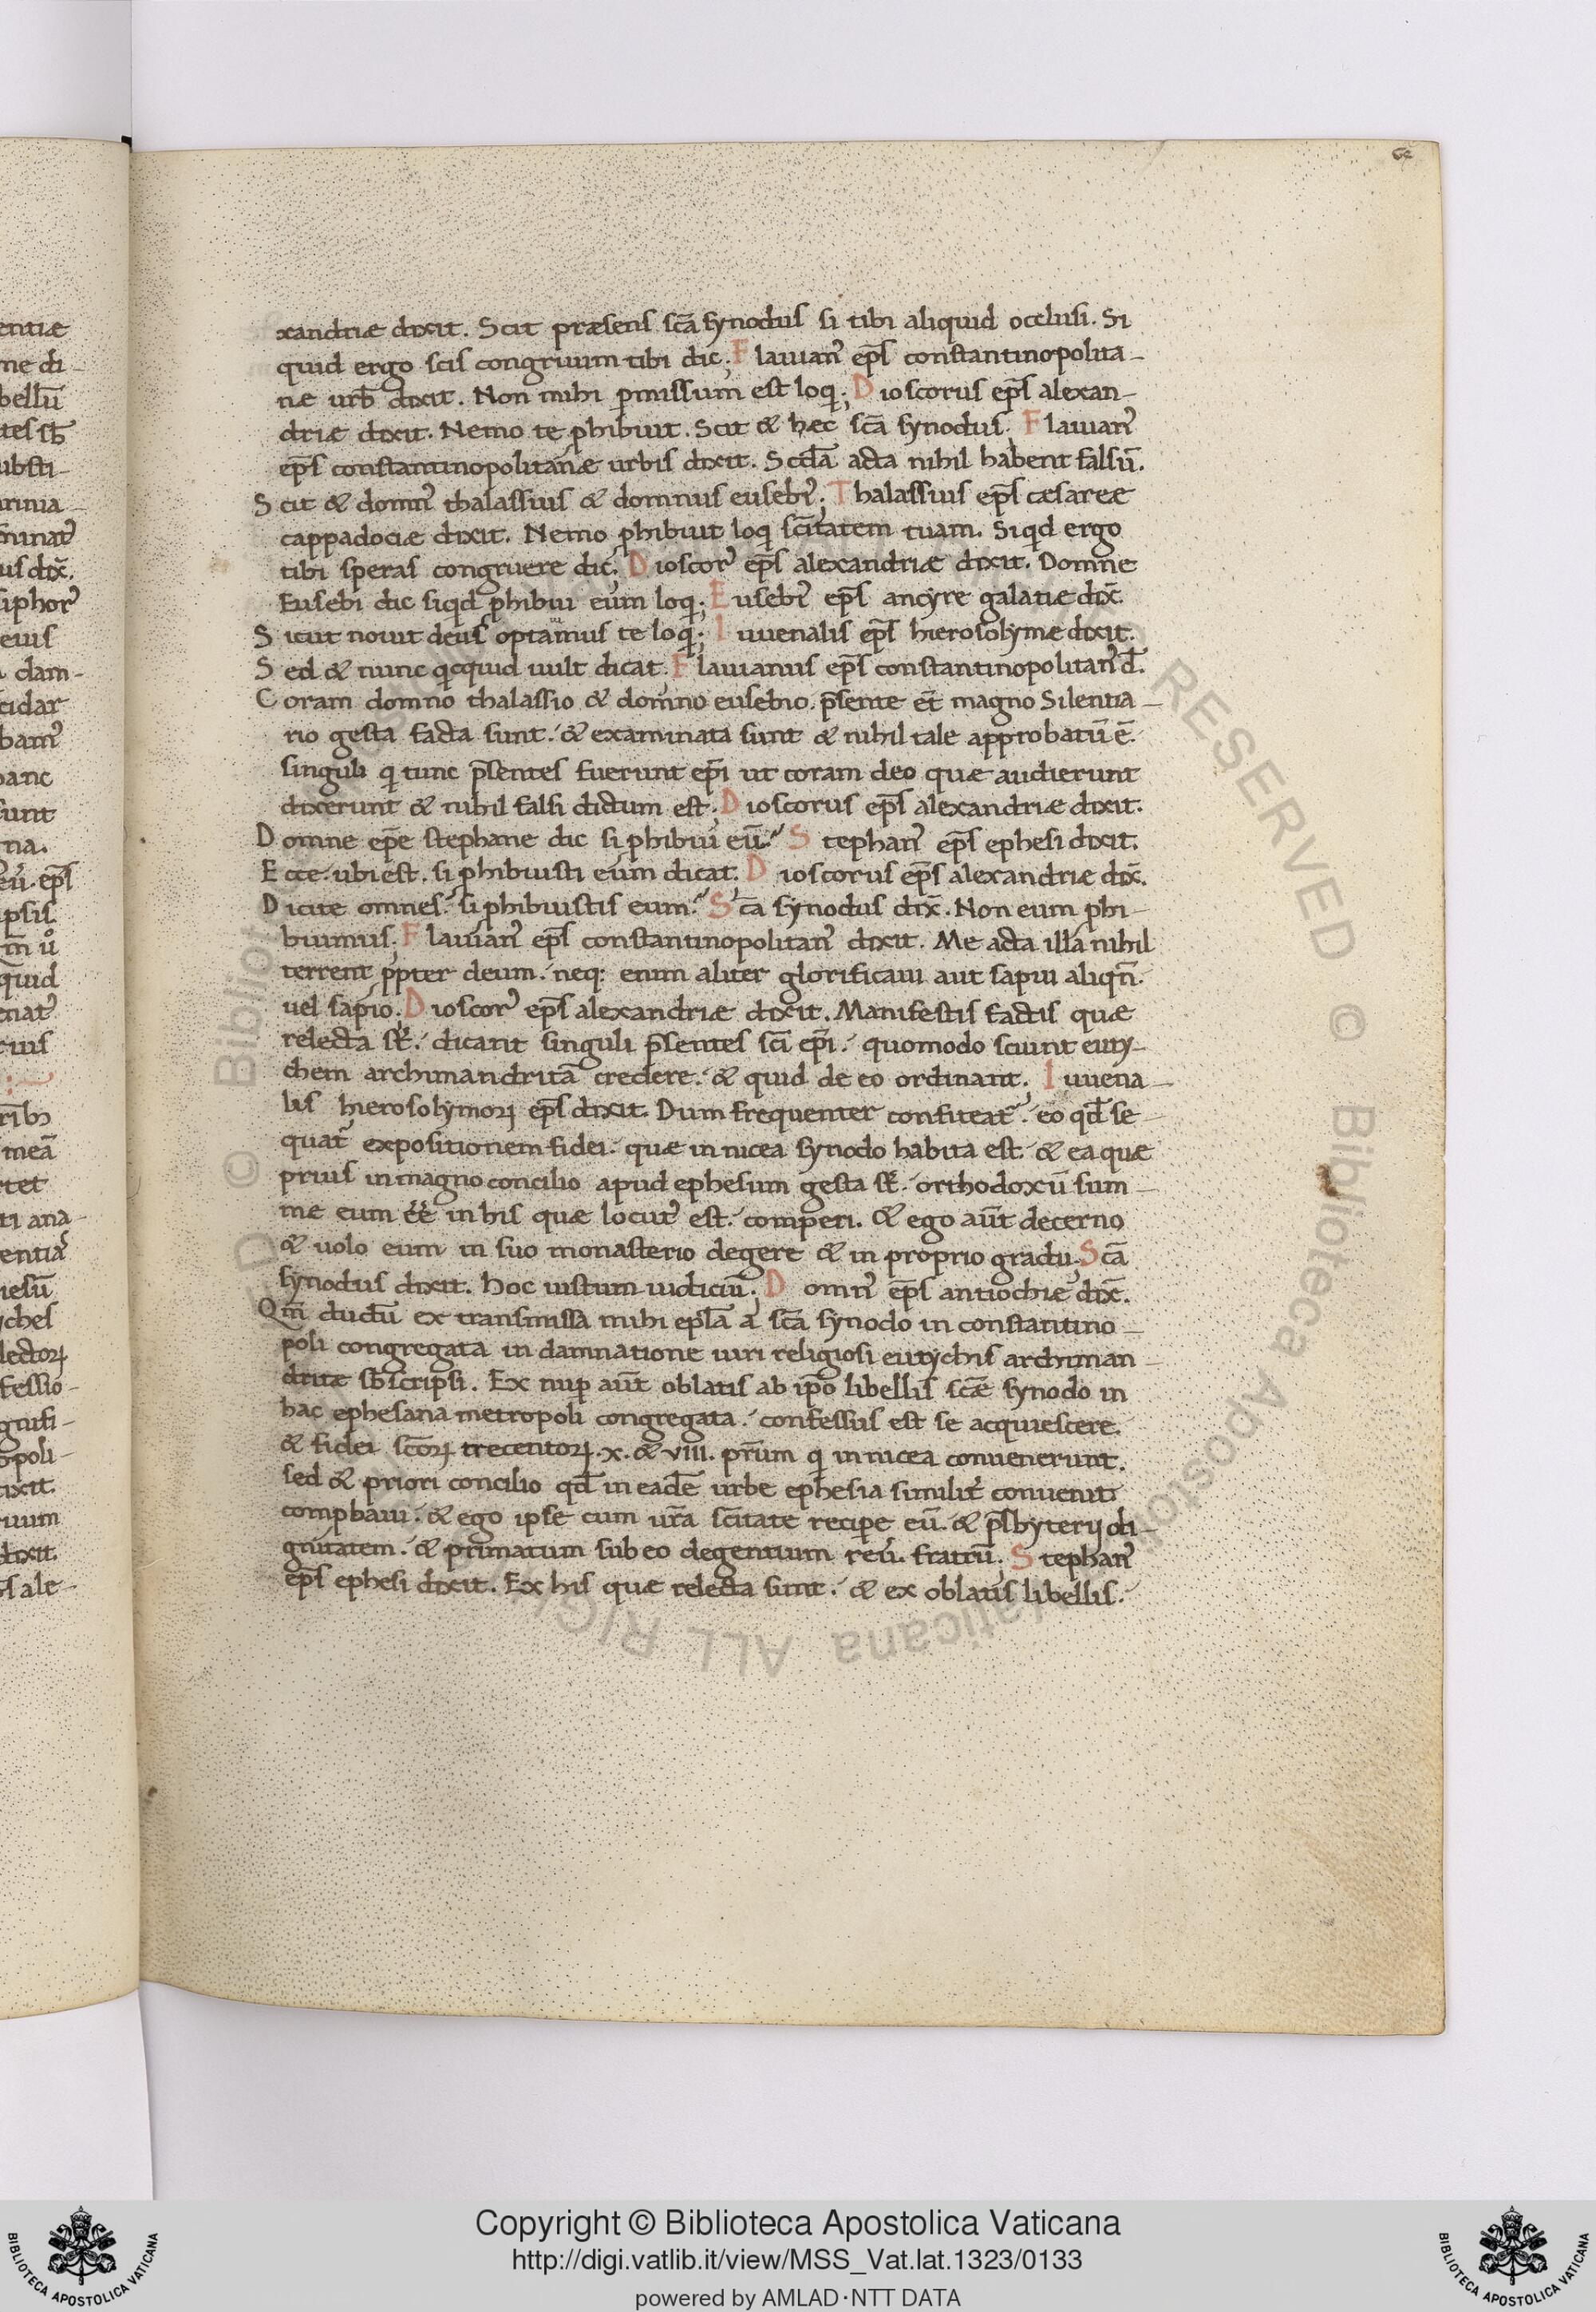 xandriæ dixit. Scit præsens scā synodus si tibi aliquid occlusi. Si
quid ergo scis congruum tibi dic; Flauianꝰ ep̄s constantinopolita-
næ urb̄ dixit. Non mihi ꝑmissum est loqi; Dioscorus ep̄s alexan-
driæ dixit. Nemo te ꝓhibuit. Scit & hæc scā synodus. Flauianꝰ
ep̄s constantinopolitanæ urbis dixit. Scd̄a acta nihil habent falsū.
Scit & domnꝰ thalassius & domnus eusebiꝰ; Thalassius ep̄s cæsareæ
cappadociæ dixit. Nemo ꝓhibuit loqi sc̄itatem tuam. Siqid ergo
tibi speras congruere dic; Dioscorꝰ ep̄s alexandriæ dixit. Domne
Eusebi dic siqid ꝓhibui eum loqi; Eusebiꝰ ep̄s ancyre galatie dix̄.
Sicut nouit deus optamus te loqi; Iuuenalis ep̄s hierosolymæ dixit.
Sed & nunc qicquid uult dicat. Flauianus ep̄s constantinopolitanꝰ d̄.
Coram domno thalassio & domno eusebio. p̄sente et̄ magno Silentia-
rio gesta facta sunt. & examinata sunt & nihil tale approbatū ē.
singuli qi tunc p̄sentes fuerunt ep̄i ut coram deo quæ audierunt
dixerunt & nihil falsi dictum est; Dioscorus ep̄s alexandriæ dixit.
Domne ep̄e stephane dic si ꝓhibui eū. Stephanꝰ ep̄s ephesi dixit.
Ecce ubi est. si ꝓhibuisti eum dicat. Dioscorus ep̄s alexandriæ dix̄.
Dicite omnes. si ꝓhibuistis eum. Scā synodus dix̄. Non eum ꝓhi-
buimus; Flauianꝰ ep̄s constantinopolitanꝰ dixit. Me acta illa nihil
terrent ꝓpter deum. neq; enim aliter glorificaui aut sapui aliqn̄.
uel sapio. Dioscorꝰ ep̄s alexandriæ dixit. Manifestis factis quæ
relecta st̄. dicant singuli p̄sentes sc̄i ep̄i. quomodo sciunt euty-
chem archimandritā credere. & quid de eo ordinant. Iuuena-
lis hierosolymoꝝ ep̄s dixit. Dum frequenter confiteat̄. eo qd̄ se-
quat̄ expositionem fidei. quæ in nicea synodo habita est. & ea quæ
prius in magno concilio apud ephesum gesta st̄. orthodoxū sum-
me eum ēē in his quæ locutꝰ est. comperi. & ego aūt decerno
& uolo eum in suo monasterio degere & in proprio gradu. Scā
synodus dixit. hoc iustum iudiciū; Domnꝰ ep̄s antiochiæ dix̄.
Qm̄ dudū ex transmissa mihi epl̄a a scā synodo in constantino-
poli congregata in damnatione uiri religiosi eutychis archiman-
dritæ sb̄scripsi. Ex nuꝑ aūt oblatis ab ip̄o libellis sc̄æ synodo in
hac ephesana metropoli congregata. confessus est se acquiescere.
& fidei sc̄oꝝ trecentoꝝ. x. & viii. pr̄um qi in nicea conuenerunt.
sed & priori concilio qd̄ in eadē urbe ephesia similit̄ conuenit
comꝓbaui. & ego ipse cum ur̄a sc̄itate reciꝑe eū. & p̄sbyterij di-
gnitatem. & primatum sub eo degentium reū. fratrū. Stephanꝰ
ep̄s ephesi dixit. Ex his quæ relecta sunt. & ex oblatis libellis.
Copyright © Biblioteca Apostolica Vaticana
http://digi.vatlib.it/view/MSS_Vat.lat.1323/0133
powered by AMLAD·NTT DATA